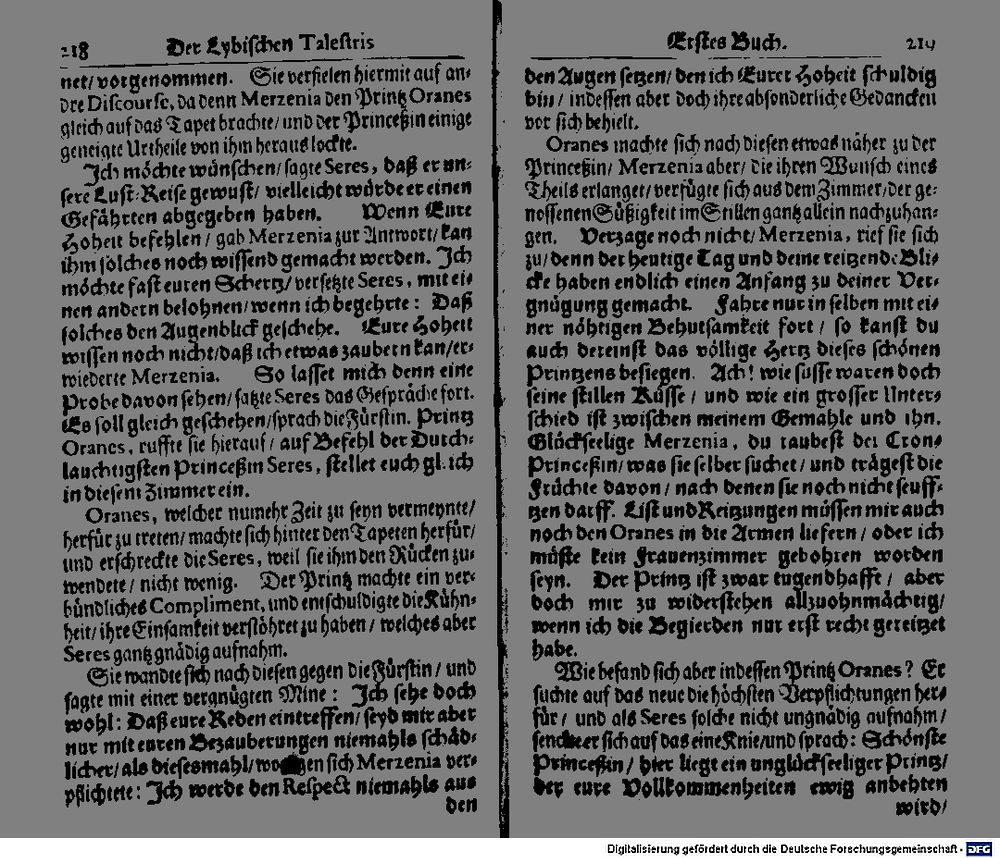 218 Der Lybischen Talestris
net/ vorgenommen. Sie verfielen hiermit auf an-
dre Discourse, da denn Merzenia den Printz Oranes
gleich auf das Tapet brachte/ und der Princeßin einige
geneigte Urtheile von ihm heraus lockte.
Ich möchte wünschen/ sagte Seres, daß er un-
sere Lust-Reise gewust/ vielleicht würde er einen
Gefährten abgegeben haben. Wenn Eure
Hoheit befehlen/ gab Merzenia zur Antwort/ kan
ihm solches noch wissend gemacht werden. Ich
möchte fast euren Schertz/ versetzte Seres, mit ei-
nen andern belohnen/ wenn ich begehrte: Daß
solches den Augenblick geschehe. Eure Hoheit
wissen noch nicht/ daß ich etwas zaubern kan/ er-
wiederte Merzenia. So lasset mich denn eine
Probe davon sehen/ satzte Seres das Gespräche fort.
Es soll gleich geschehen/ sprach die Fürstin. Printz
Oranes, ruffte sie hierauf/ auf Befehl der Durch-
lauchtigsten Princeßin Seres, stellet euch gleich
in diesem Zimmer ein.
Oranes, welcher numehr Zeit zu seyn vermeynte/
herfür zu treten/ machte sich hinter den Tapeten herfür/
und erschreckte die Seres, weil sie ihm den Rücken zu-
wendete/ nicht wenig. Der Printz machte ein ver-
bündliches Compliment, und entschuldigte die Kühn-
heit/ ihre Einsamkeit verstöhret zu haben/ welches aber
Seres gantz gnädig aufnahm.
Sie wandte sich nach diesen gegen die Fürstin/ und
sagte mit einer vergnügten Mine: Ich sehe doch
wohl: Daß eure Reden eintreffen/ seyd mir aber
nur mit euren Bezauberungen niemahls schäd-
licher/ als diesesmahl/ wogegen sich Merzenia ver-
pflichtete: Ich werde den Respect niemahls aus
den
Erstes Buch. 219
den Augen setzen/ den ich Eurer Hoheit schuldig
bin/ indessen aber doch ihre absonderliche Gedancken
vor sich behielt.
Oranes machte sich nach diesen etwas näher zu der
Princeßin/ Merzenia aber/ die ihren Wunsch eines
Theils erlanget/ verfügte sich aus dem Zimmer/ der ge-
nossenen Süßigkeit im Stillen gantz allein nachzuhan-
gen. Verzage noch nicht/ Merzenia, rief sie sich
zu/ denn der heutige Tag und deine reitzende Bli-
cke haben endlich einen Anfang zu deiner Ver-
gnügung gemacht. Fahre nur in selben mit ei-
ner nöhtigen Behutsamkeit fort/ so kanst du
auch dereinst das völlige Hertz dieses schönen
Printzens besiegen. Ach! wie süsse waren doch
seine stillen Küsse/ und wie ein grosser Unter-
schied ist zwischen meinem Gemahle und ihn.
Glückseelige Merzenia, du raubest der Cron-
Princeßin/ was sie selber suchet/ und trägest die
Früchte davon/ nach denen sie noch nicht seuff-
tzen darff. List und Reitzungen müssen mir auch
noch den Oranes in die Armen liefern/ oder ich
müste kein Frauenzimmer gebohren worden
seyn. Der Printz ist zwar tugendhafft/ aber
doch mir zu widerstehen allzuohnmächtig/
wenn ich die Begierden nur erst recht gereitzet
habe.
Wie befand sich aber indessen Printz Oranes? Er
suchte auf das neue die höchsten Verpflichtungen her-
für/ und als Seres solche nicht ungnädig aufnahm/
senckte er sich auf das eine Knie/ und sprach: Schönste
Princeßin/ hier liegt ein unglückseeliger Printz/
der eure Vollkommenheiten ewig anbehten
wird/
Digitalisierung gefördert durch die Deutsche Forschungsgemeinschaft - DFG